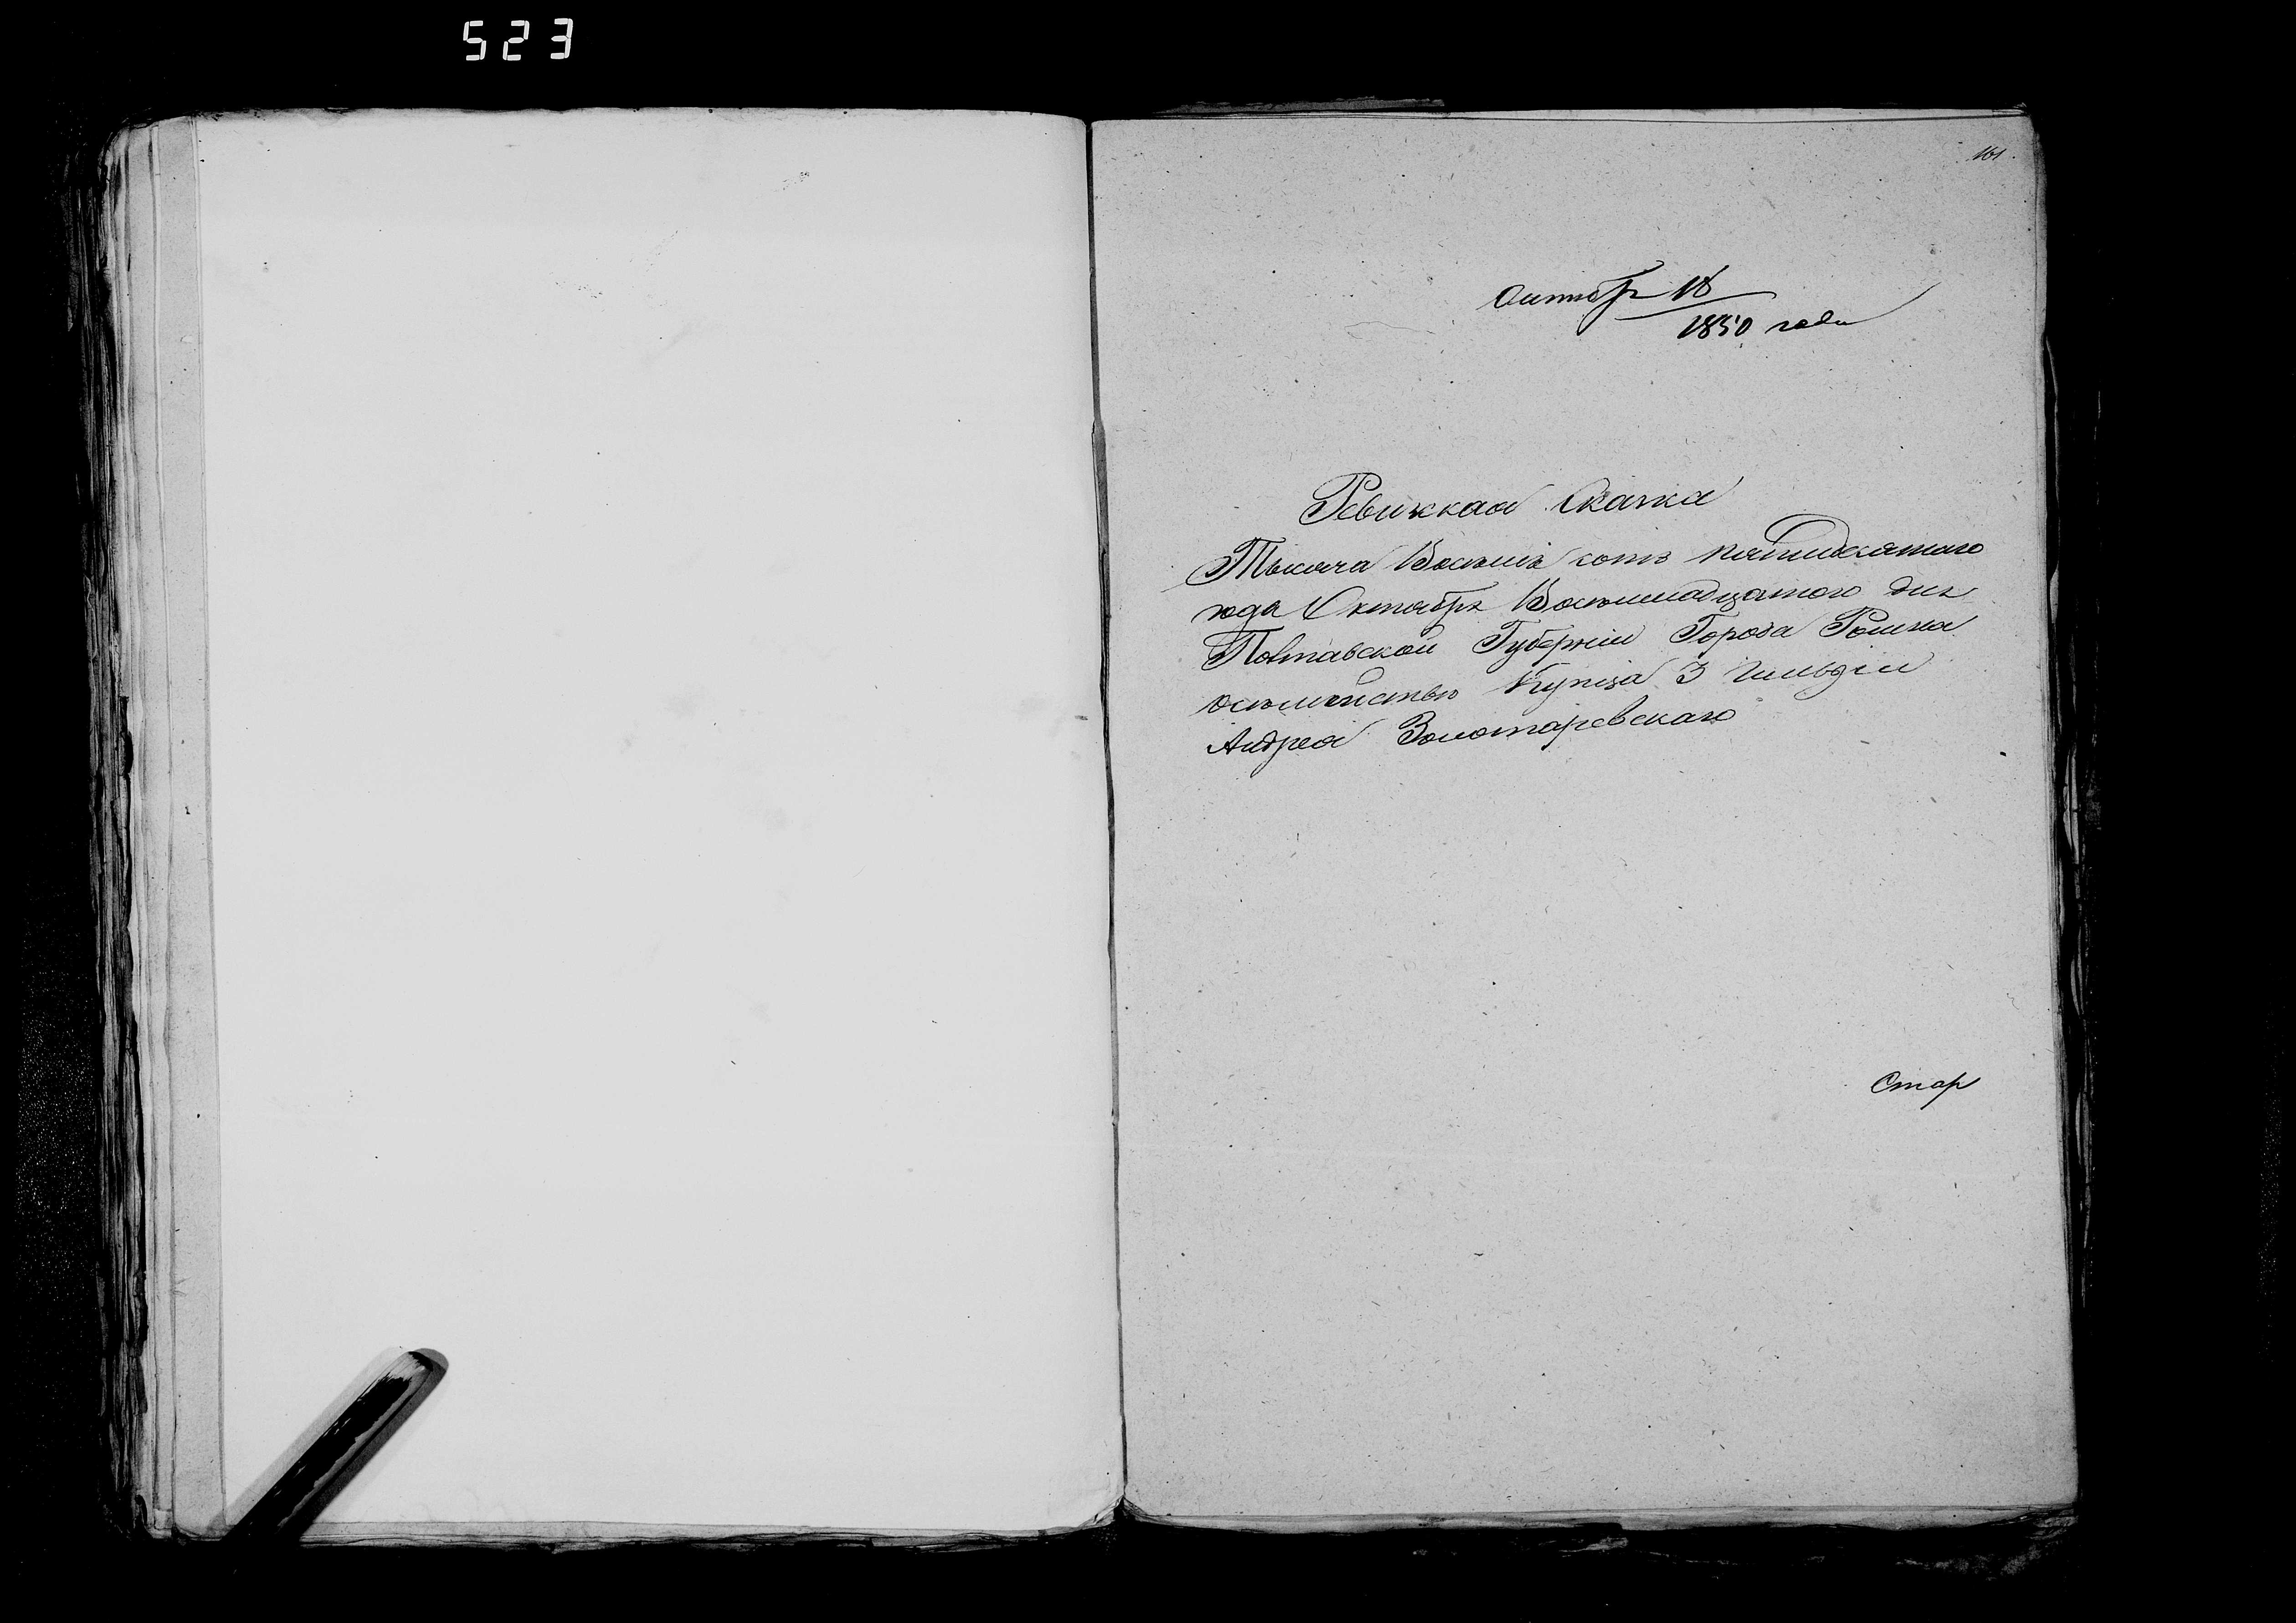 523
161.
Октябр 18
1850 года
Ревижская Сказка
Тысяча Восемь сотъ пятидесятаго
года Октября Восемнадцатого дня
Полтавской Губерніи Города Ромна
Купца 3 гильдіи
Андрея Золотаревскаго
Стар